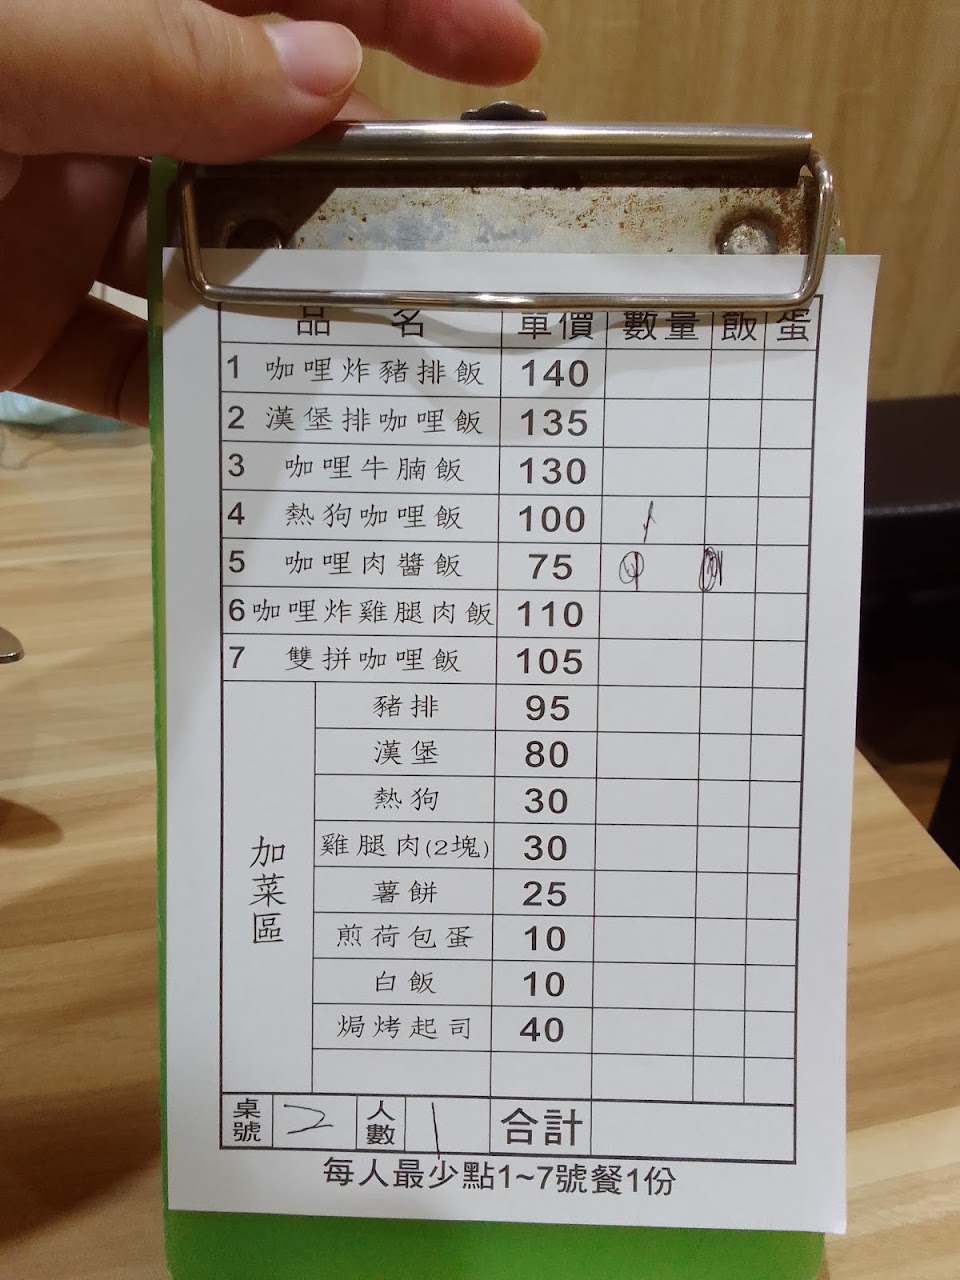 品 名 單價 數量 飯 蛋
1 咖哩炸豬排飯 140
2 漢堡排咖哩飯 135
3 咖哩牛腩飯 130
4 熱狗咖哩飯 100 1
5 咖哩肉醬飯 75
6 咖哩炸雞腿肉飯 110
7 雙拼咖哩飯 105
加菜區
豬排 95
漢堡 80
熱狗 30
雞腿肉(2塊) 30
薯餅 25
煎荷包蛋 10
白飯 10
焗烤起司 40
桌號 2 人數 1 合計
每人最少點1~7號餐1份